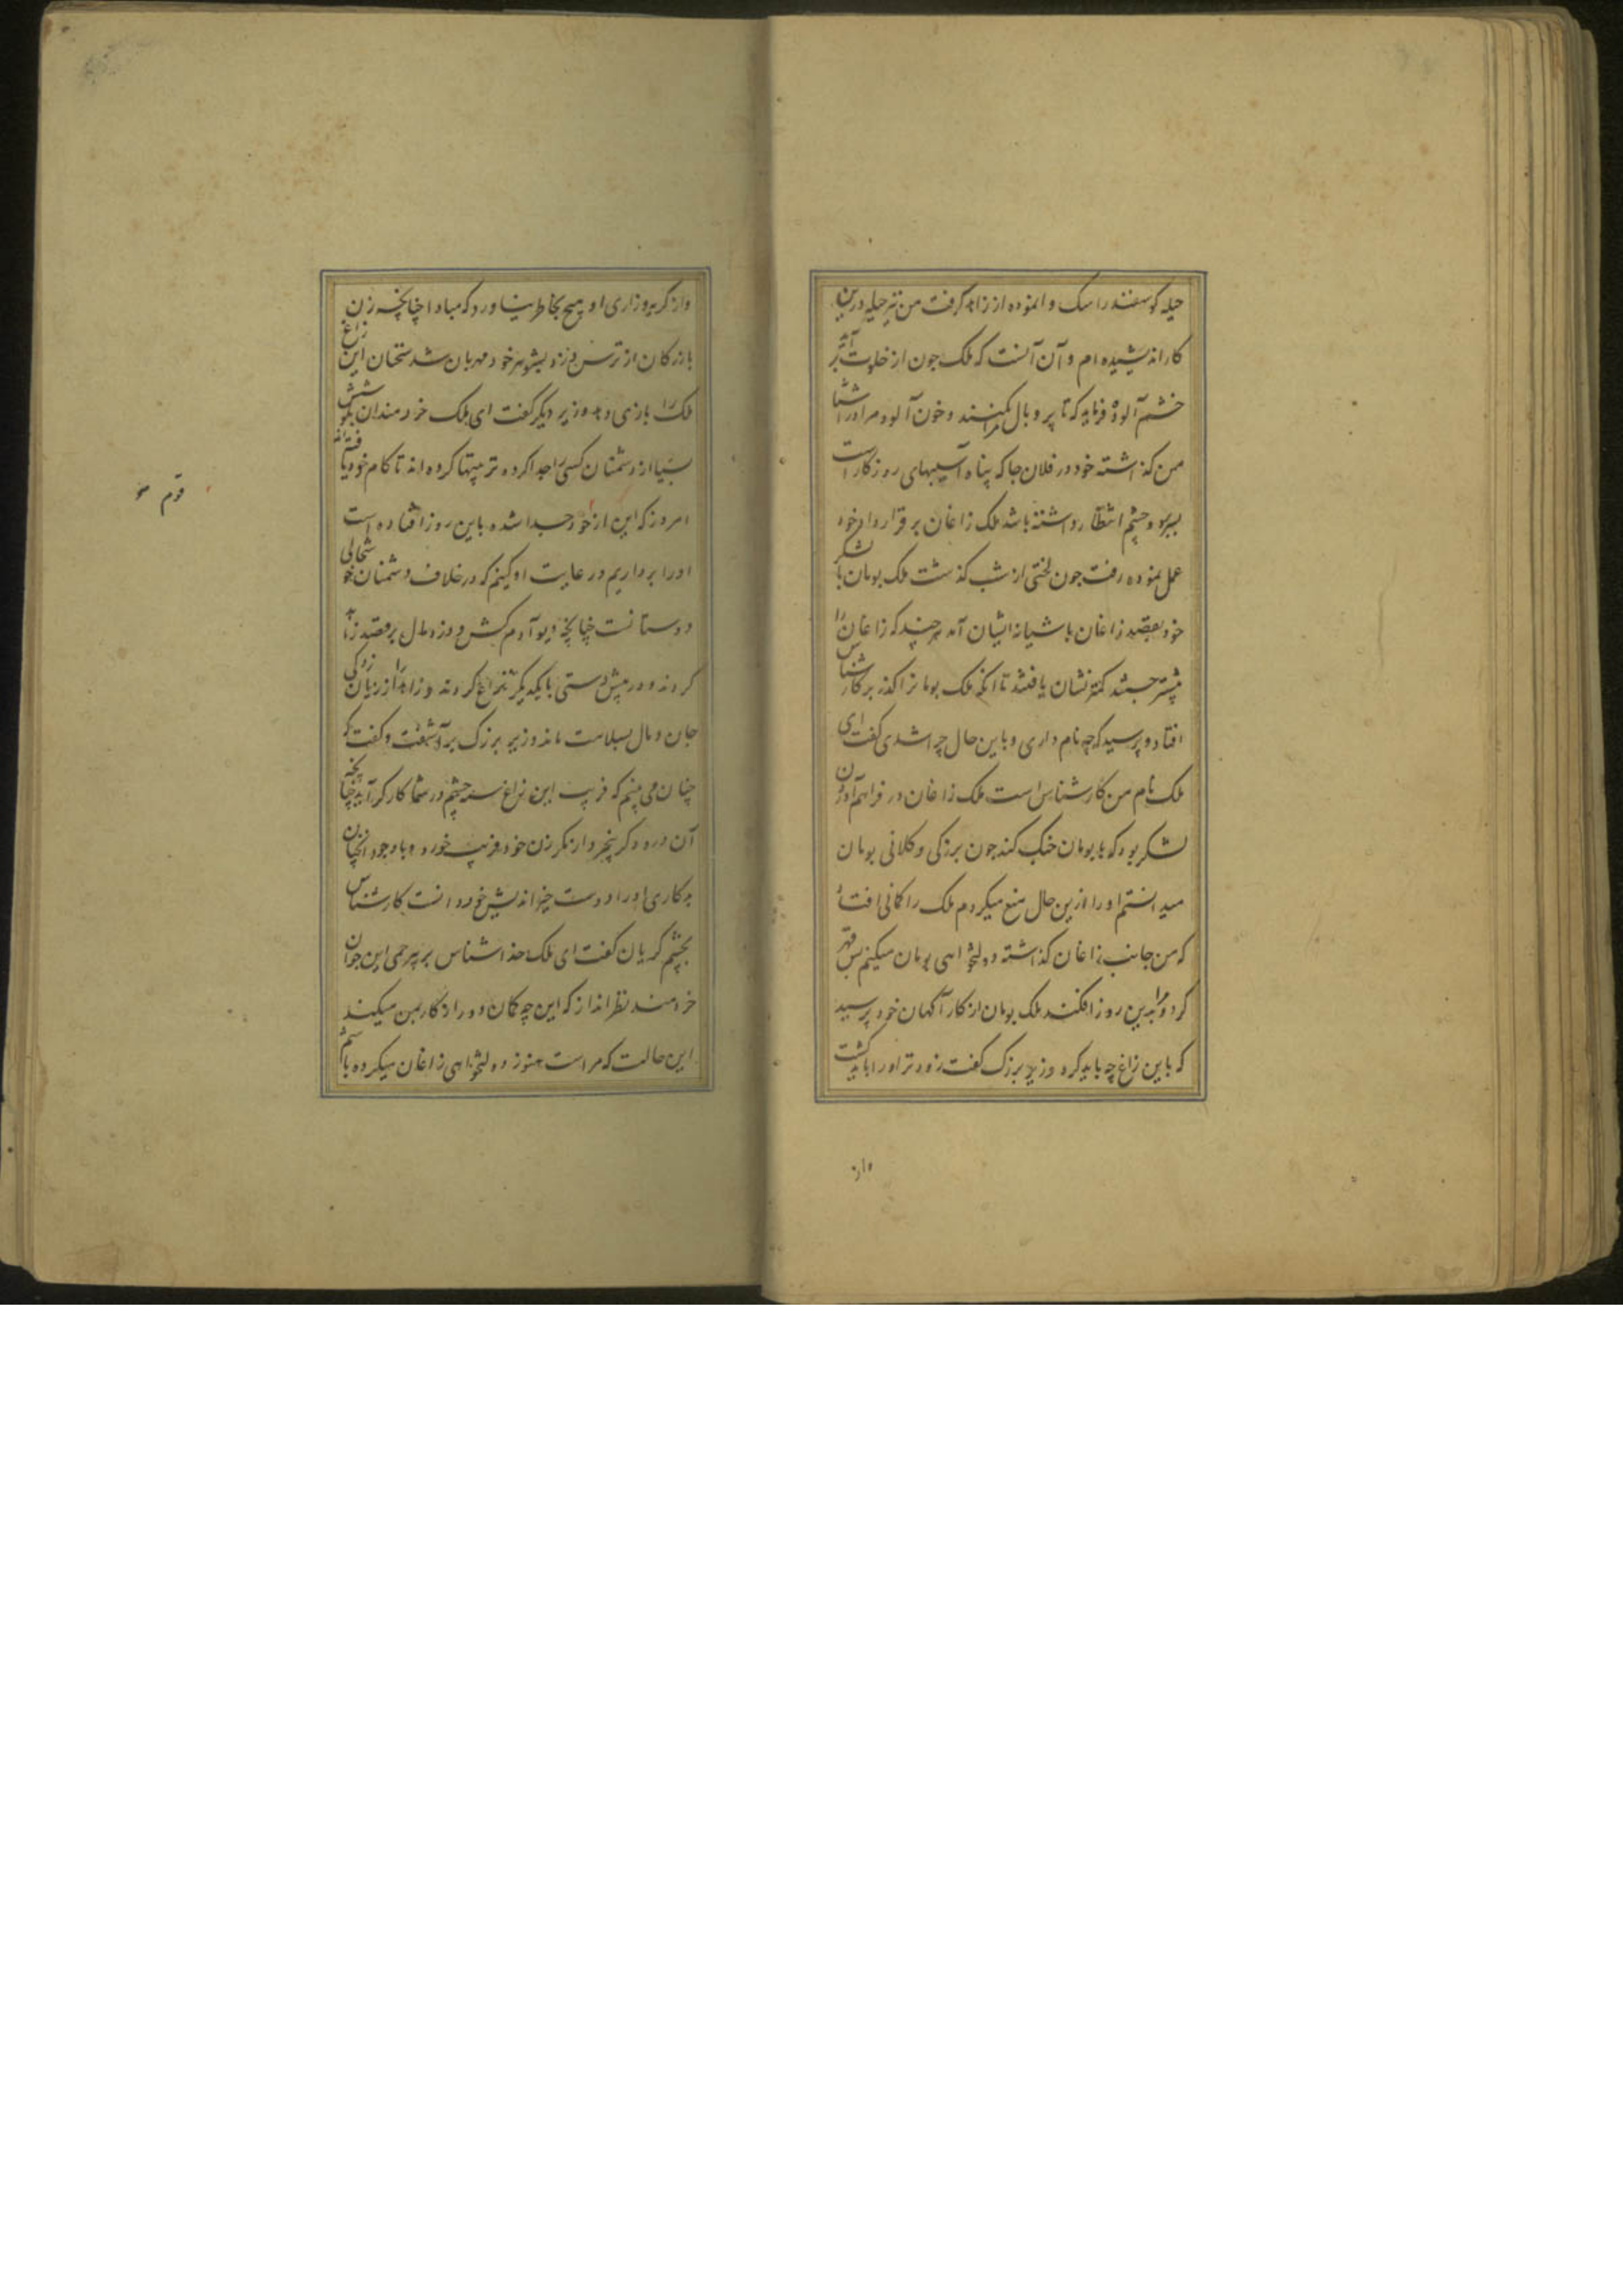 حیله گوسفند را سگ وانموده از زاهد گرفت من نیز حیله درین
کار اندیشیده ام و آن آنست که ملک چون از خلوت برآید
خشم آلوده فرماید که تا پر و بال مرا بکنند و خون آلوده مرا در آشیا
من گذاشته خود در فلان جا که پناه آسیبهای روزگار است
ببرد و چشم انتظار داشته باشد ملک زاغان بر قرارداد خود
عمل نموده رفت چون لختی از شب گذشت ملک بومان با لشکر
خود بقصد زاغان باشیانه ایشان آمد هر چند که زاغان را
بیشتر جستند کمتر نشان یافتند تا آنکه ملک بومانرا گذر بر کارشناس
افتاد و پرسید که چه نام داری و باین حال چرا شدی گفت ای
ملک نام من کارشناس است ملک زاغان در فراهم آوردن
لشکر بود که با بومان جنگ کند چون بزرگی و کلانی بومان
میدانستم او را ازین حال منع میکردم ملک را گمانی افتاد
که من جانب زاغان گذاشته دولتخواهی بومان میکنم پس قهر
کرد و مرا بدین روز افکند ملک بومان از کارآگهان خود پرسید
که باین زاغ چه باید کرد وزیر بزرگ گفت زودتر او را باید کشت
واز
واز گریه و زاری او هیچ بخاطر نیاورد که مبادا چنانچه زن
بازرگان از ترس دزد بشوهر خود مهربان شد سخنان این زاغ
ملک را بازی دهد وزیر دیگر گفت ای ملک خردمندان بکوشش
بسیار از دشمنان کسی را جدا کرده تربیتها کرده اند تا کام خود یافته اند
امروز که این از خود جدا شده باین روز افتاده است
او را برداریم و رعایت او کنیم که در خلاف دشمنان خوشحالی
دوستانست چنانچه دیو آدم کش و دزد مال بر قصد زاهد
کردند و در پیش دستی بایکدیگر نزاع کردند و زاهد را از زیان زدگی
جان و مال بسلامت ماند وزیر بزرگ برآشفت و گفت که
چنان می بینم که فریب این زاغ سیه چشم در شما کارگر آید چنانچه
آن درودگر بیخرد از مکر زن خود فریب خورد و باوجود آنچنان
بدکاری او را دوست خیراندیش خود دانست کارشناس
بچشم گریان گفت ای ملک خداشناس بر بیرحمی این جوان
خردمند نظر انداز که این چه گمان دور از کار بمن میکند
این حالت که مراست هنوز دولتخواهی زاغان میکرده باشم
قوم